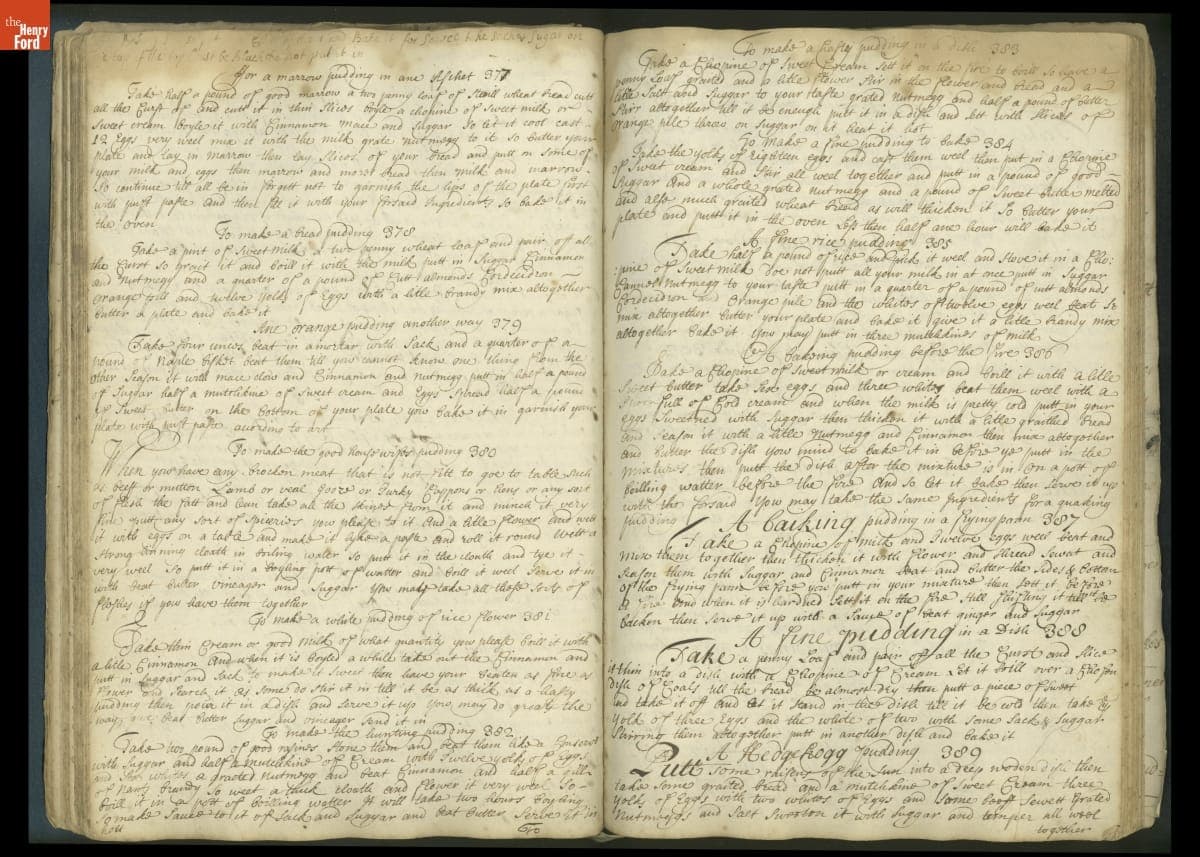 the
Henry
Ford
and Bake it for Sauce take Sugar on
put it in
For a marrow pudding in ane Ashet 377
Take half a pound of good marrow a two penny loaf of Staill wheat bread cutt
all the Curst of and cutt it in thin Slices boyle a chopine of Sweet milk or
Sweet cream boyle it with Cinnamon mace and Suggar So let it cool cast
12 Eggs very weel mix it with the milk grate nutmegg to it So butter your
plate and Lay in marrow then lay Slices of your Bread and putt in Some of
your milk and eggs then marrow and more Bread then milk and marrow
So continue till all be in forgett not to garnish the lips of the plate first
with puft paste and then fill it with your forsaid Ingredients So bake it in
the oven
To make a bread pudding 378
Take a pint of Sweet milk a two penny wheat loaf and pair of al
the Curst So grait it and boill it with the milk putt in Suggar Cinnamon
and Nutmegg and a quarter of a pound of Cutt almonds Cordecidron
orange pill and twelve yolks of Eggs with a litle brandy mix altogether
butter a plate and bake it
fine orange pudding another way 379
Take four unces beat in a mortar with Sack and a quarter of a
pound of Naple bisket beat them till you cannot know one thing from the
other Season it with mace clove and Cinnamon and nutmegg putt in half a pound
of Suggar half a mutchkine of Sweet cream and Eggs Spread half a pound
of Sweet butter on the bottom of your plate you bake it in garnish your
plate with puft paste according to art
To make the good house wifes pudding 380
When you have any brocken meat that is not fitt to goe to table such
as beef or mutton Lamb or veal goose or Turky Cappons or hens or any sort
of flesh the fatt and lean take all the skines from it and mince it very
fine putt any sort of Spiceries you please to it and a litle flower and wett
it with eggs on a table and make it Lyke a paste and roll it round Wett a
strong Linning cloath in boiling water So putt it in the cloath and tye it
very weel So putt it in a boyling pott of watter and boil it weel Serve it in
with beat butter vineager and Suggar You may take all those sorts of
fleshes if you have them together
To make a whole pudding of rice flower 381
Take thin Cream or good milk of what quantity you please boil it with
a litle Cinnamon and when it is boyled a while take out the Cinnamon and
putt in Suggar and Sack to make it Sweet then have your beaten as fine as
flower and Searce it as Some do stir it in till it be as thick as a hasty
pudding then pour it in a dish and serve it up you may do greats the
way, beat butter Suggar and vineager Send it in
To make the hunting pudding 382
Take two pound of good raisins Stone them and beat them like a Conserve
with Suggar and half a mutchkine of Cream with Twelve yolks of Eggs
and Six whites a grated Nutmegg and beat Cinnamon and half a gill
of Nantz brandy So weet a thick cloath and flower it very weel So
boill it in a pott of boilling watter it will take two hours boyling
So make Sauce to it of Sack and Suggar and beat butter Serve it in
hott
To
To make a hasty pudding in a dish 383
Take a Chopine of Sweet Cream Sett it on the fire to boill So have a
penny Loaf graited and a litle flower Stir in the flower and bread and a
litle Salt and Suggar to your taste grated Nutmegg and half a pound of better
Stirr altogether till it be enough putt it in a dish and sett with slices of
orange pile throw on Suggar on it Eeat it hot
To Make a fine pudding to bake 384
Take the yolks of Eighteen eggs and cast them weel then put in a Chopine
of Sweet cream and Stir all weel together and putt in a pound of good
Suggar and a whole grated nutmegg and a pound of Sweet butter melted
and also much graited wheat bread as will thicken it So butter your
plate and putt it in the oven Less then half ane hour will bake it
A fine rice pudding 385
Take half a pound of rice and pick it weel and Stove it in a Cho:
:pine of Sweet milk Doe not putt all your milk in at once putt in Suggar
Cannell Nutmegg to your taste putt in a quarter of a pound of cutt almonds
Cordecidron and Orange pile and the whites of twelve eggs weel beat So
mix altogether butter your plate and bake it give it a litle brandy mix
altogether bake it you may putt in three mutchkins of milk
A bakeing pudding before the fire 386
Take a Chopine of Sweet milk or cream and boill it with a litle
Sweet butter take Six eggs and three whites beat them weel with a
Spoonfull of Cold cream and when the milk is pretty cold putt in your
eggs Sweetned with Suggar then thicken it with a litle graithed bread
and Season it with a litle Nutmegg and Cinnamon then mix altogether
and butter the dish you mind to bake it in before ye putt in the
mixture, then putt the dish after the mixture is in on a pott of
boilling watter before the fire And so let it bake then serve it up
with the forsaid You may take the same Ingredients for a quaking
pudding
A backing pudding in a frying pann 387
Take a Chopine of milk and Twelve eggs weel beat and
mix them together then thicken it with flower and Shread Sewat and
Season them with Suggar and Cinnamon Beat and butter the Sides & bottom
of the frying pann before you putt in your mixture then Sett it before
a fire and when it is hardned sett it on the fire still shifting it till it be
backen then serve it up with a Sauce of beat ginger and Suggar
A fine pudding in a Dish 388
Take a penny Loaf and pair of all the Curst and Slice
it thin into a dish with a Chopine of Cream Let it boill over a Chafon
dish of Coals till the bread be almost dry then putt a piece of Sweet
and take it off and let it stand in the dish till it be cold then take the
yolk of three Eggs and the white of two with some Sack & Suggar
stirring them altogether putt in another dish and bake it
A Hedgehogg pudding 389
Putt some raisens of the Sun into a deep woden dish then
take some graited bread and a mutchkine of Sweet Cream three
yolks of Eggs with two whites of Eggs and some beef Sewett Grated
Nutmeggs and Salt Sweeten it with Suggar and temper all weel
together